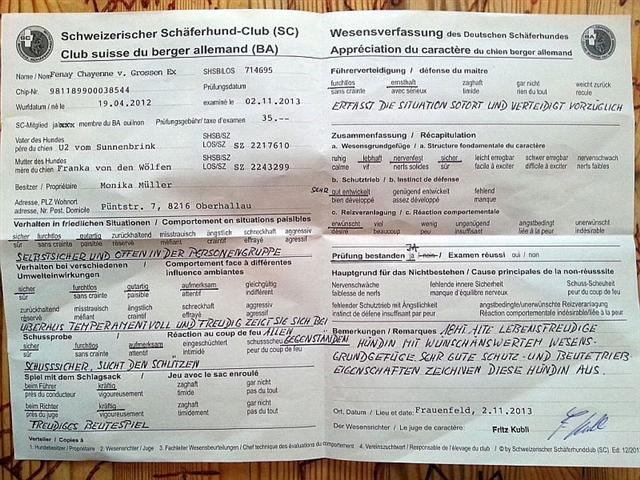 Schweizerischer Schäferhund-Club (SC)
Club suisse du berger allemand (BA)
Name / Nom Fenay Chayenne v. Grossen Ex SHSB/LOS 714695
Chip-Nr. 981189900038544 Prüfungsdatum
Wurfdatum / né le 19.04.2012 examiné le 02.11.2013
SC-Mitglied ja membre du BA oui/non Prüfungsgebühr/ taxe d'examen 35.--
Vater des Hundes SHSB/SZ
père du chien U2 vom Sunnenbrink LOS/SZ SZ 2217610
Mutter des Hundes SHSB/SZ
mère du chien Franka von den Wölfen LOS/SZ SZ 2243299
Besitzer / Propriétaire Monika Müller
Adresse, PLZ Wohnort
Adresse, No. Postal, Domicile Püntstr. 7, 8216 Oberhallau
Verhalten in friedlichen Situationen / Comportement en situations paisibles
sicher furchtlos gutartig zurückhaltend misstrauisch ängstlich schreckhaft aggressiv
sûr sans crainte paisible réservé méfiant craintif effrayé agressif
SELBSTSICHER UND OFFEN IN DER PERSONENGRUPPE
Verhalten bei verschiedenen / Comportement face à différentes
Umwelteinwirkungen influence ambiantes
sicher furchtlos gutartig aufmerksam gleichgültig
sûr sans crainte paisible attentif indifférent
zurückhaltend misstrauisch ängstlich schreckhaft aggressiv
réservé méfiant craintif effrayé agressif
ÜBERAUS TEMPERAMENTVOLL UND FREUDIG ZEIGT SIE SICH BEI
ALLEN GEGENSTÄNDEN
Schussprobe / Réaction au coup de feu
sicher furchtlos aufmerksam eingeschüchtert schussscheu
sûr sans crainte attentif intimidé peur du coup de feu
SCHUSSSICHER, SUCHT DEN SCHÜTZEN
Spiel mit dem Schlagsack / Jeu avec le sac enroulé
beim Führer kräftig zaghaft gar nicht
près du conducteur vigoureusement timide pas du tout
beim Richter kräftig zaghaft gar nicht
près du juge vigoureusement timide pas du tout
FREUDIGES BEUTESPIEL
Verteiler / Copies à
1. Hundebesitzer / Propriétaire 2. Wesensrichter / Juge
Wesensverfassung des Deutschen Schäferhundes
Appréciation du caractère du chien berger allemand
Führerverteidigung / défense du maître
furchtlos ernsthaft zaghaft gar nicht weicht zurück
sans crainte avec sérieux timide rien du tout recule
ERFASST DIE SITUATION SOFORT UND VERTEIDIGT VORZÜGLICH
Zusammenfassung / Récapitulation
a. Wesensgrundgefüge / a. Structure fondamentale du caractère
ruhig lebhaft nervenfest sicher leicht erregbar schwer erregbar nervenschwach
calme vif nerfs solides sûr facile à exciter difficile à exciter nerfs faibles
b. Schutztrieb / b. Instinct de défense
SEHR gut entwickelt genügend entwickelt fehlend
bien développé assez développé manque
c. Reizveranlagung / c. Réaction comportementale
erwünscht viel wenig ungenügend angstbedingt unerwünscht
désiré beaucoup peu insuffisant liée à la peur indésiré
Prüfung bestanden ja JA / Examen réussi oui / non
Hauptgrund für das Nichtbestehen / Cause principales de la non-réussite
Nervenschwäche fehlende innere Sicherheit Schuss-Scheuheit
faiblesse de nerfs manque d'équilibre nerveux peur du coup de feu
fehlender Schutztrieb mit Ängstlichkeit angstbedingte/unerwünschte Reizveranlagung
instinct de défense insuffisant par peur Réaction comportementale indésirable/liée à la peur
Bemerkungen / Remarques ALTE LEBENSFREUDIGE
HÜNDIN MIT WUNSCHÄNSWERTEM WESENS-
GRUNDGEFÜGE. SEHR GUTE SCHUTZ- UND BEUTETRIEB
EIGENSCHAFTEN ZEICHNEN DIESE HÜNDIN AUS.
Ort, Datum / Lieu et date: Frauenfeld, 2.11.2013
Der Wesensrichter / Le juge de caractère: Fritz Kubli
4. Vereinszuchtwart / Responsable de l'élevage du club / © by Schweizerischer Schäferhundclub (SC) Ed. 12/201